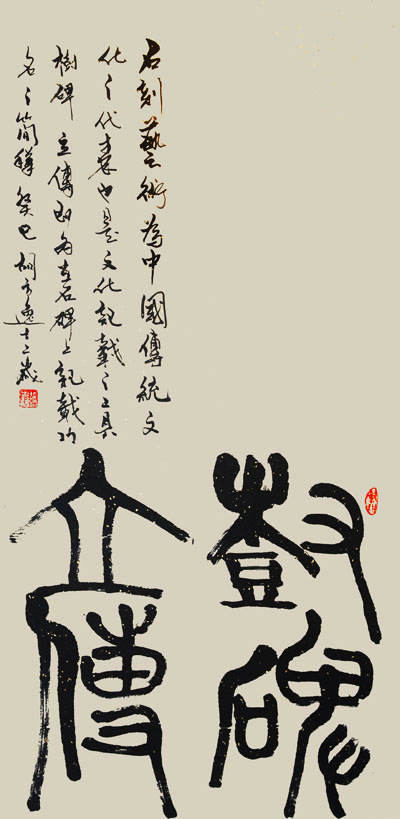 樹碑
立傳
石刻藝術為中國傳統文
化之代表也是文化記載之工具
樹碑立傳即為在石碑上記載功
名之簡釋癸巳胡方逸歲